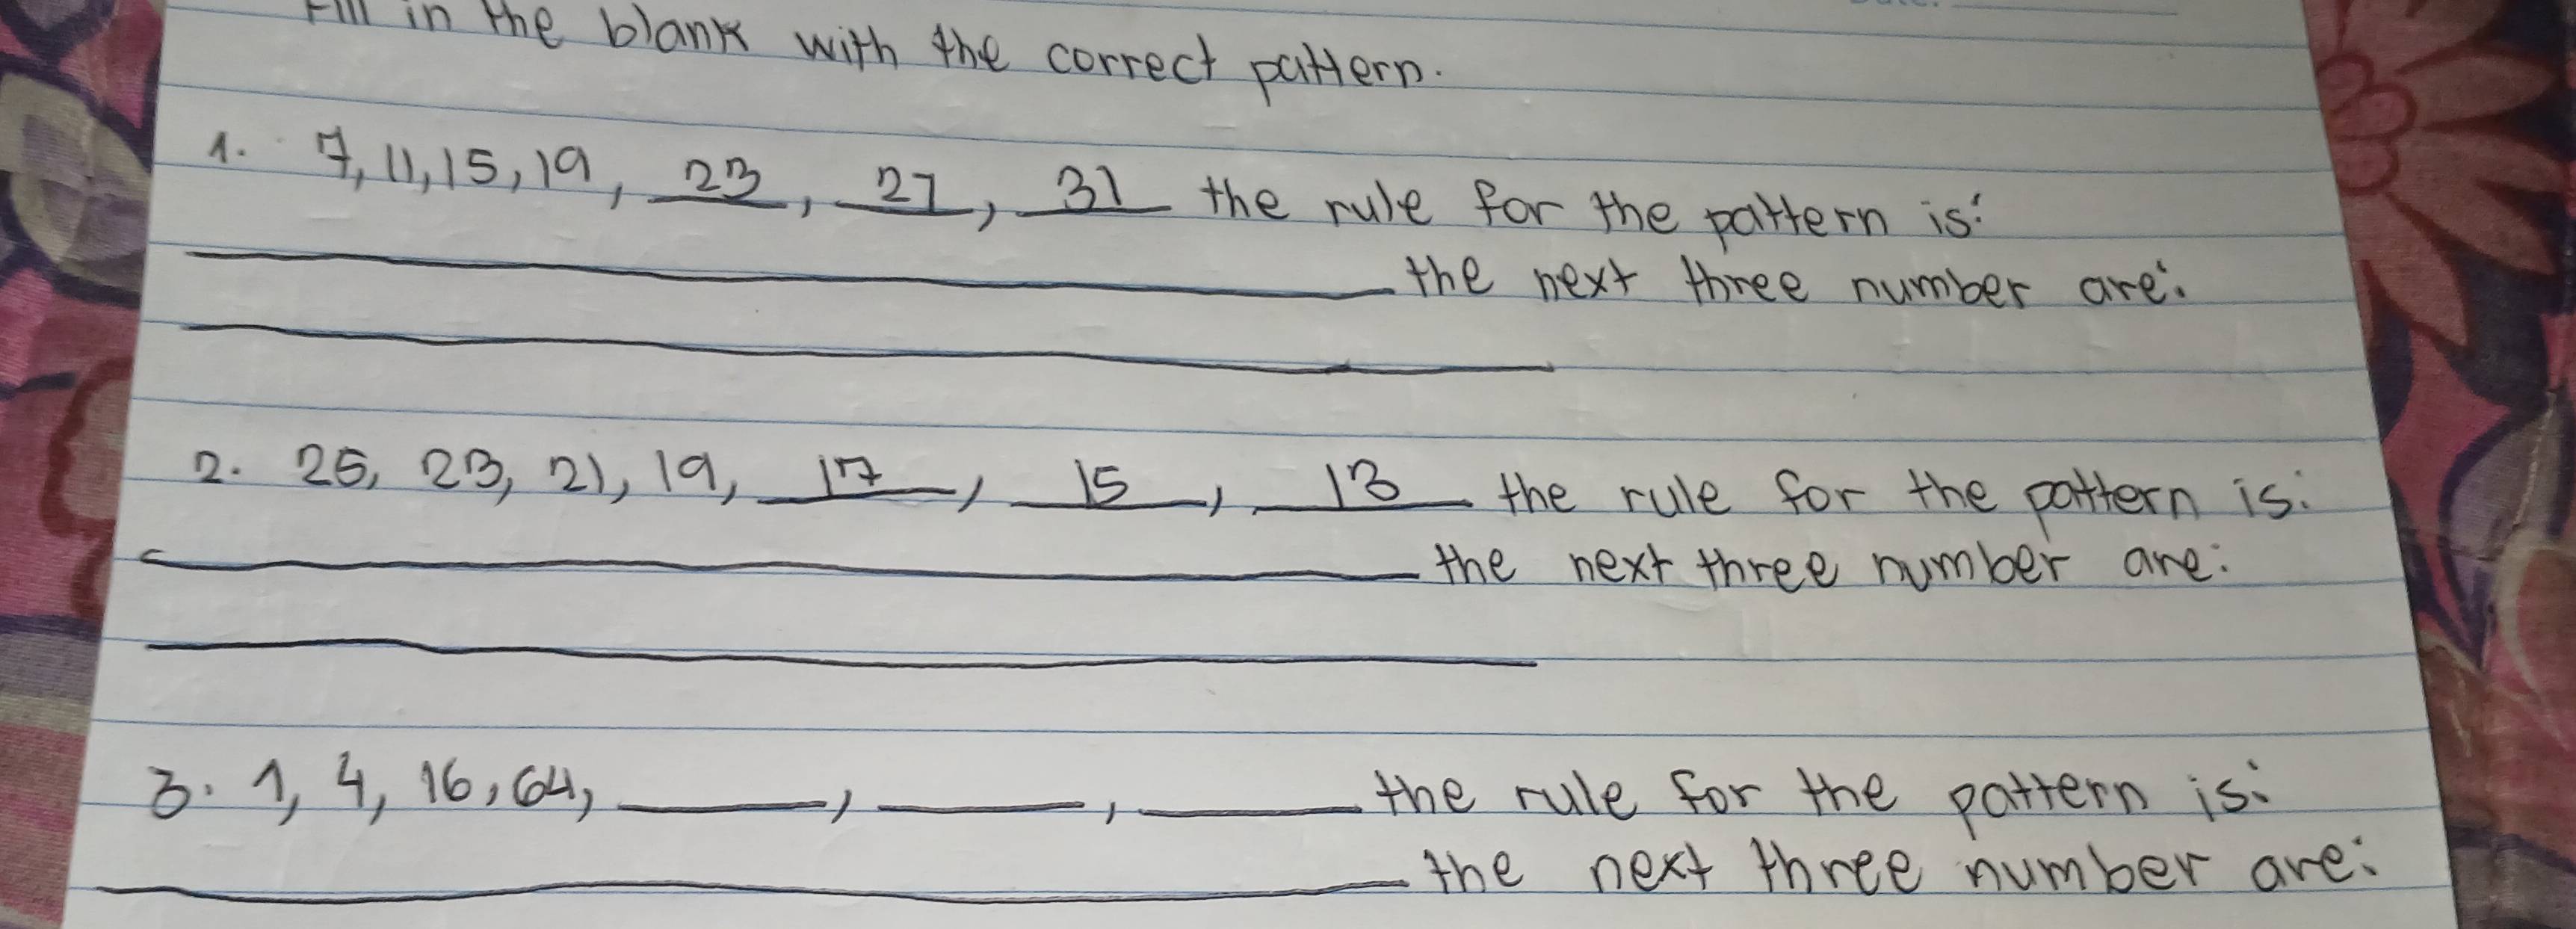 Fill in the blank with the correct pattern.
1. 7, 11, 15, 19, 23, 27, 31 the rule for the pattern is:
the next three number are:
2. 25, 23, 21, 19, 17, 15, 13 the rule for the pattern is:
the next three number are:
3. 1, 4, 16, 64, ____, ____, ____ the rule for the pattern is:
the next three number are: